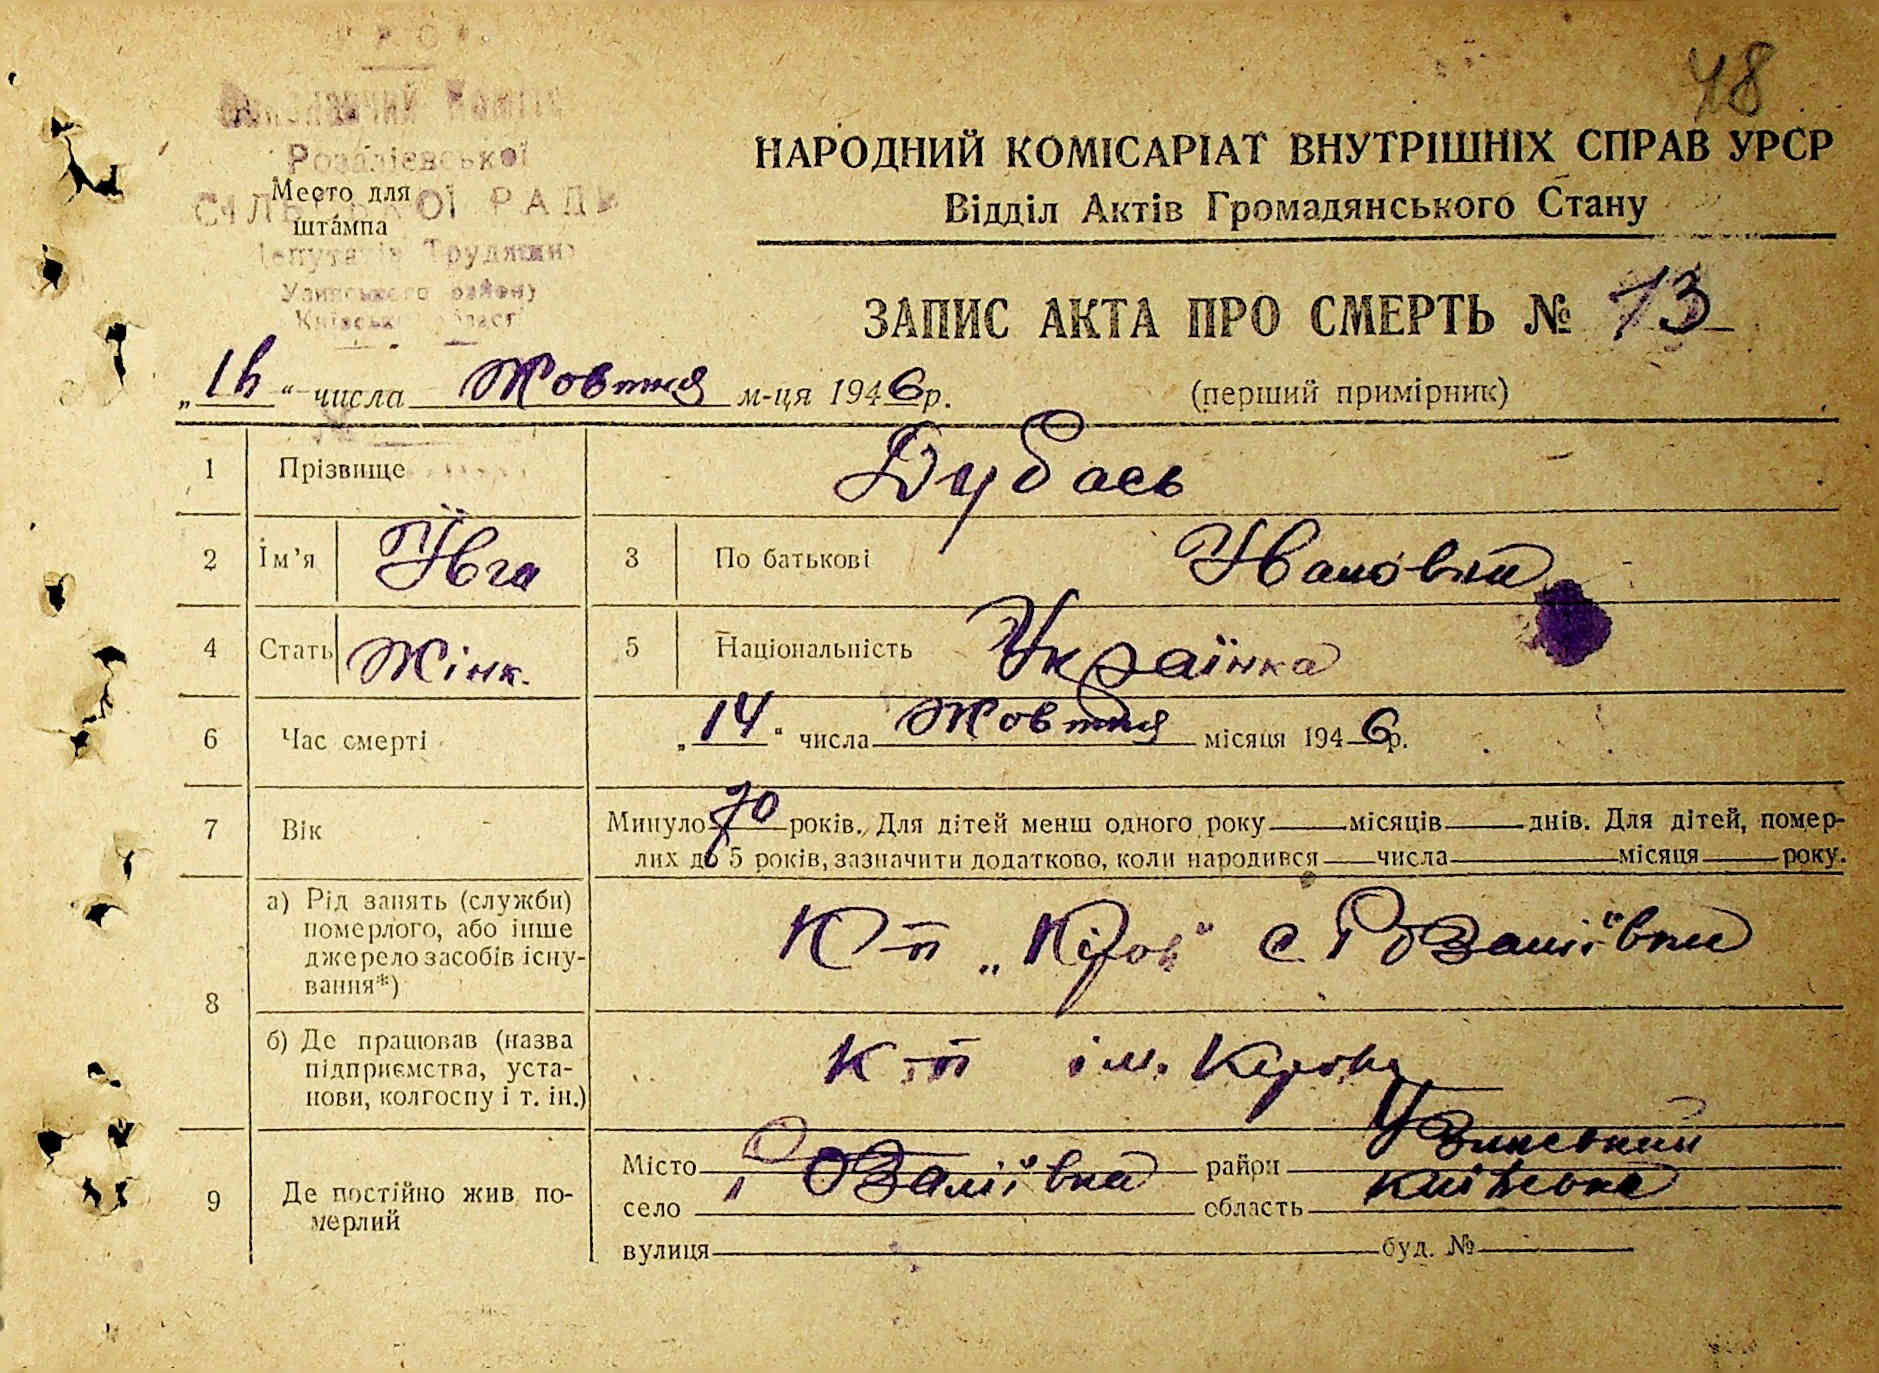 48
Розаліевської
СІЛЬСЬКОЇ РАДИ
Депутатів Трудящих
Узинського району
Київської області
Место для
штампа
НАРОДНИЙ КОМІСАРІАТ ВНУТРІШНІХ СПРАВ УРСР
Відділ Актів Громадянського Стану
ЗАПИС АКТА ПРО СМЕРТЬ № 73
числа Жовтня м-ця 1946р. (перший примірник)
1 Прізвище Дубась
2 Ім'я Ївга 3 По батькові Ивановна
4 Стать Жінк. 5 Національність Українка
6 Час смерті „14“ числа Жовтня місяця 1946р.
7 Вік Минуло 70 років. Для дітей менш одного року місяців днів. Для дітей, помер-
лих до 5 років, зазначити додатково, коли народився числа місяця року.
8 а) Рід занять (служби)
померлого, або інше
джерело засобів існу-
вання*)
К-п „Кіров“ с Розаліївки
б) Де працював (назва
підприємства, уста-
нови, колгоспу і т. ін.)
К-п ім. Кірова
9 Де постійно жив по-
мерлий
Місто Розаліївка район Узинський
село область Київська
вулиця буд. №